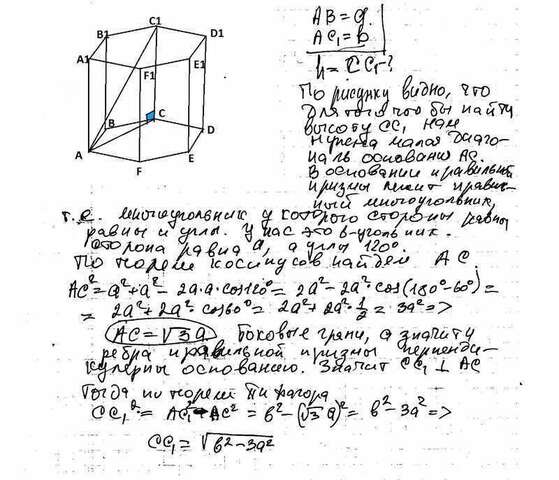 C1
B1
D1
A1
E1
F1
B
C
A
D
F
E
AB = a.
AC₁ = b
h = CC₁ - ?
По рисунку видно, что
для того что бы найти
высоту CC₁ нам
нужна малая диаго-
наль основания AC.
В основании правильной
призмы лежит правиль-
ный многоугольник,
т.е. многоугольник у которого стороны равны
равны и углы. У нас это 6-угольник.
сторона равна a, а углы 120°.
По теореме косинусов найдем AC.
AC² = a² + a² - 2a·a·cos120° = 2a² - 2a²·cos(180°-60°) =
= 2a² + 2a²·cos60° = 2a² + 2a²·½ = 3a² =>
AC = √3a. Боковые грани, а значит и
ребра правильной призмы перпенди-
кулярны основанию. Значит CC₁ ⊥ AC
Тогда по теореме Пифагора
CC₁² = AC₁² - AC² = b² - (√3a)² = b² - 3a² =>
CC₁ = √b² - 3a²